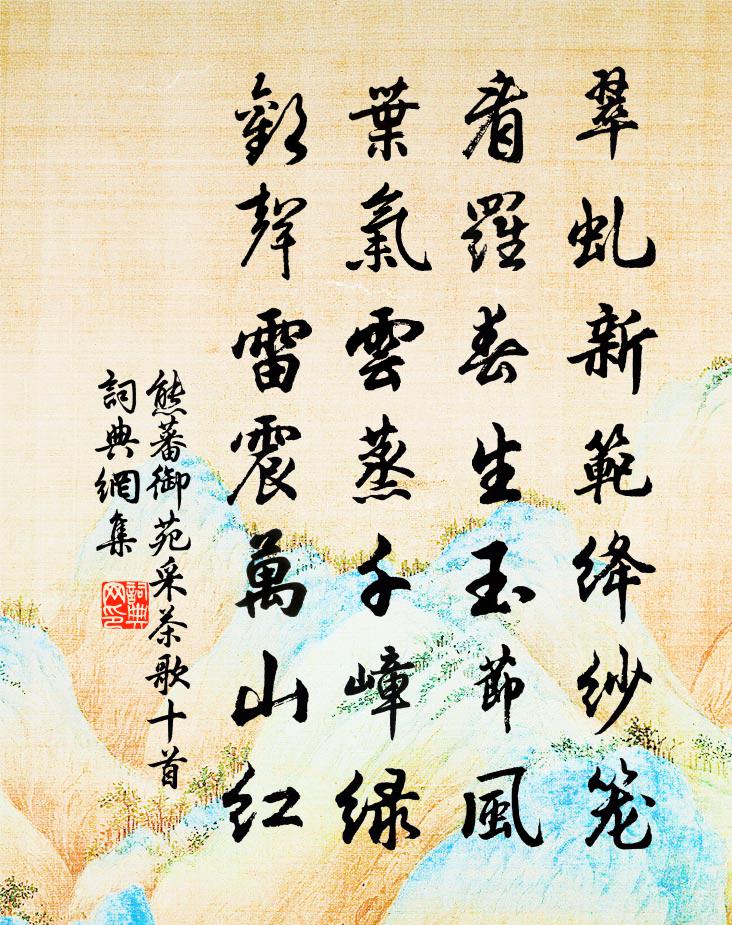 翠虬新範絳紗笼
看羅春生玉節風
葉氣雲蒸千嶂緑
歡聲雷震萬山红
熊蕃御苑采茶歌十首
詞典網集
詞典网印